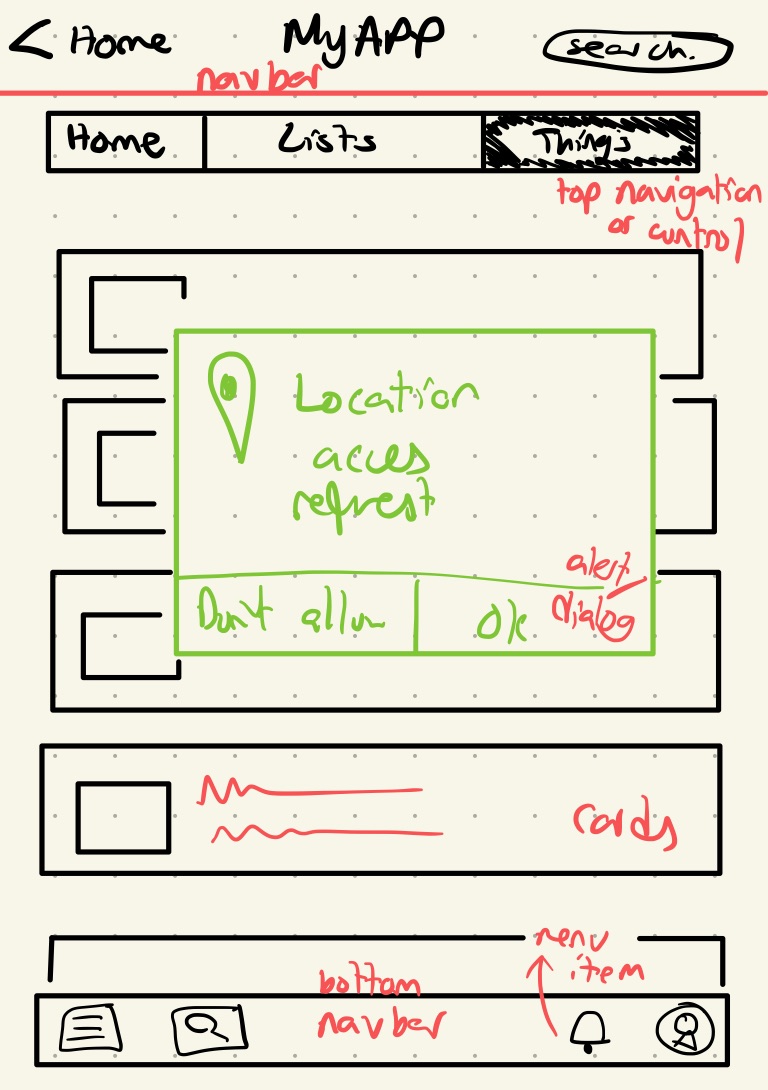 < Home
MyAPP
search.
navbar
Home
Lists
Things
top navigation
or control
Location
acces
reqrest
alert
dialog
Don't allow
Ok
cards
menu
item
bottom
navbar